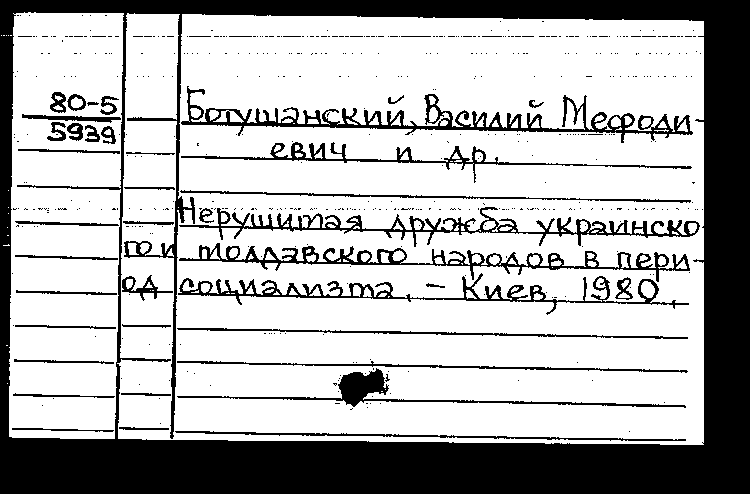 80-5
5939
Ботушанский, Василий Мефоди-
евич и др.
Нерушимая дружба украинско
го и молдавского народов в пери-
од социализма. - Киев, 1980.